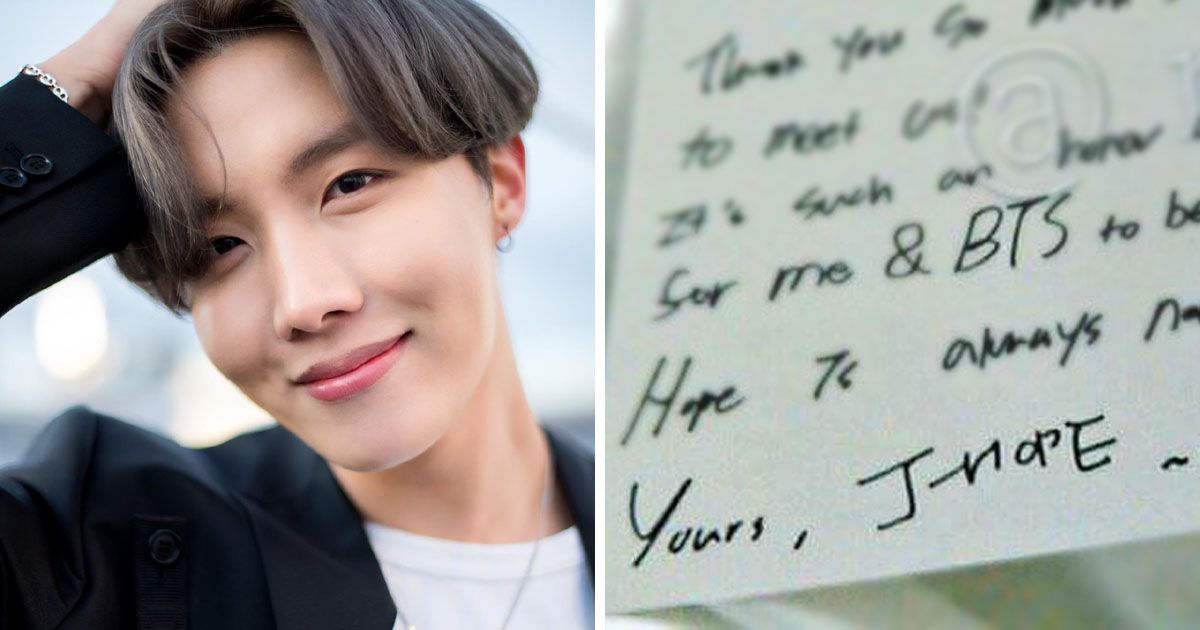 Thank you so much
to meet
It's such an honor
for me & BTS to be
Hope to always
Yours, J-HOPE ~
@